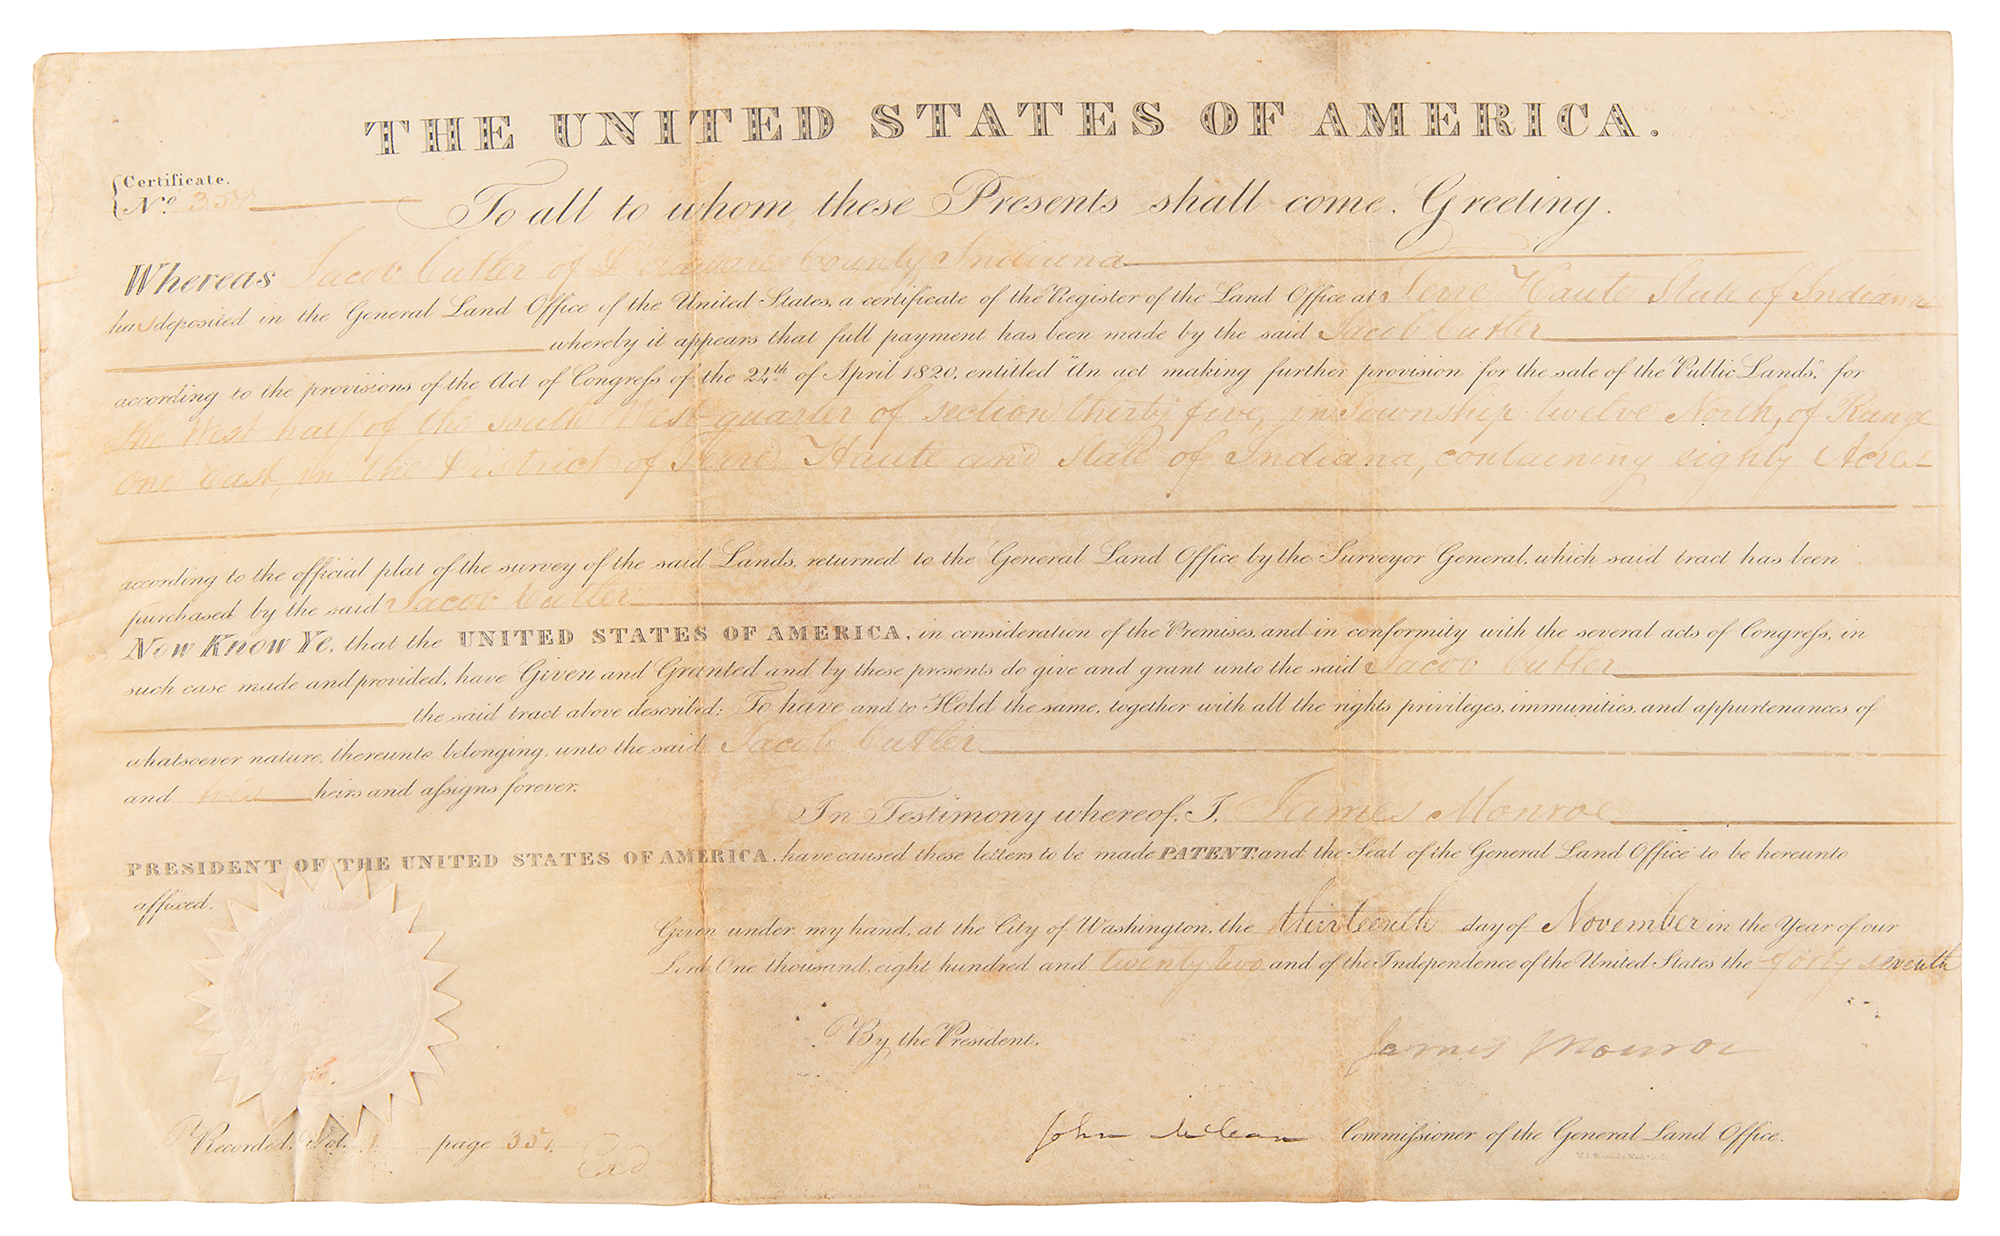 THE UNITED STATES OF AMERICA.
Certificate.
No. 357
To all to whom these Presents shall come, Greeting.
Whereas Jacob Cutler of Delaware County Indiana
has deposited in the General Land Office of the United States, a certificate of the Register of the Land Office at Terre Haute State of Indiana
whereby it appears that full payment has been made by the said Jacob Cutler
according to the provisions of the Act of Congreſs of the 24th of April 1820, entitled "An act making further provision for the sale of the Public Lands", for
the West half of the South West quarter of section thirty five, in Township twelve North, of Range
One East, in the District of Terre Haute and State of Indiana, containing eighty Acres
according to the official plat of the survey of the said Lands, returned to the General Land Office by the Surveyor General, which said tract has been
purchased by the said Jacob Cutler
Now Know Ye, that the UNITED STATES OF AMERICA, in consideration of the Premises, and in conformity with the several acts of Congreſs, in
such case made and provided, have Given and Granted and by these presents do give and grant unto the said Jacob Cutler
the said tract above described; To have and to Hold the same, together with all the rights privileges, immunities, and appurtenances of
whatsoever nature, thereunto belonging, unto the said Jacob Cutler
and his heirs and aſsigns forever.
In Testimony whereof, I, James Monroe
PRESIDENT OF THE UNITED STATES OF AMERICA, have caused these letters to be made PATENT, and the Seal of the General Land Office to be hereunto
affixed.
Given under my hand, at the City of Washington, the thirteenth day of November in the Year of our
Lord One thousand, eight hundred and twenty two and of the Independence of the United States the forty seventh
By the President,
James Monroe
John McLean Commiſsioner of the General Land Office.
Recorded, Vol. 1 page 357